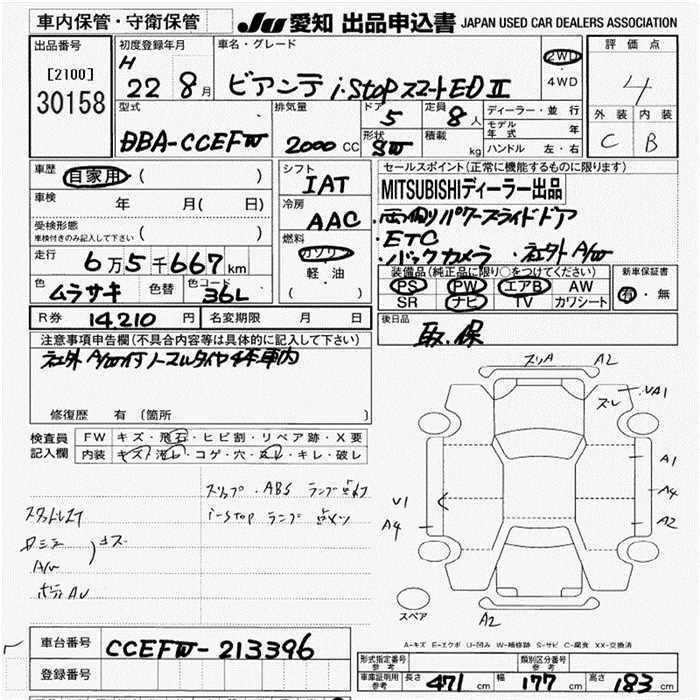 車内保管・守衛保管 JU 愛知 出品申込書 JAPAN USED CAR DEALERS ASSOCIATION
出品番号 初度登録年月 車名・グレード 評価点
[2100] H 2WD
30158 22 8月 ビアンテ i-Stop スマートED II 4WD 4
型式 排気量 ドア 定員 ディーラー・並行 外装 内装
DBA-CCEFW 2000 CC 5 8人 モデル年式 年 C B
形状 SW 積載 kg ハンドル 左・右
車歴 自家用 ( ) シフト IAT セールスポイント(正常に機能するものに限ります)
車検 年 月( 日) 冷房 AAC MITSUBISHIディーラー出品
受検形態 ・両側パワースライドドア
車検付きのみ記入して下さい ( ) 燃料 ガソリン ・ETC
走行 6万5千667km 軽・油 ・バックカメラ ・社外A/W
色 ムラサキ 色替 色コード 36L ( ) 装備品(純正品に限り○をつけてください) 新車保証書
PS PW エアB AW 有・無
SR ナビ TV カワシート
R券 14,210円 名変期限 月 日 後日品 取.保
注意事項申告欄(不具合内容等は具体的に記入して下さい)
社外A/W付ノーマルタイヤ4本車内
修復歴 有 (箇所 )
検査員 FW キズ・飛石・ヒビ割・リペア跡・X要
記入欄 内装 キズ・汚レ・コゲ・穴・スレ・キレ・破レ
スリA A2
スレ UA1
A1
A4
A2
U1
A4
スリップ・ABS ランプ点灯
i-stop ランプ 点メツ
スタッドレス
A/W
ボディAU
スペア A2
A-キズ E-エクボ U-凹み W-補修跡 S-サビ C-腐食 XX-交換済
車台番号 CCEFW-213396
登録番号
形式指定番号 参考 類別区分番号 参考
車庫証明用 参考 長さ 471 cm 幅 177 cm 高さ 183 cm